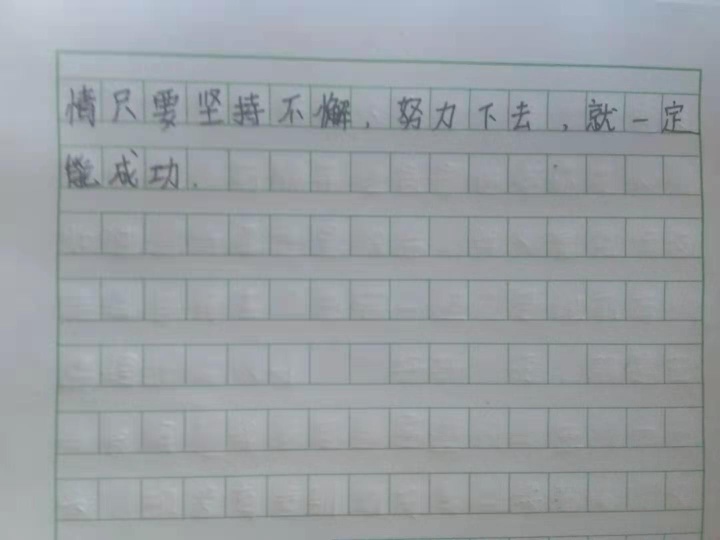 情只要坚持不懈，努力下去，就一定
能成功.